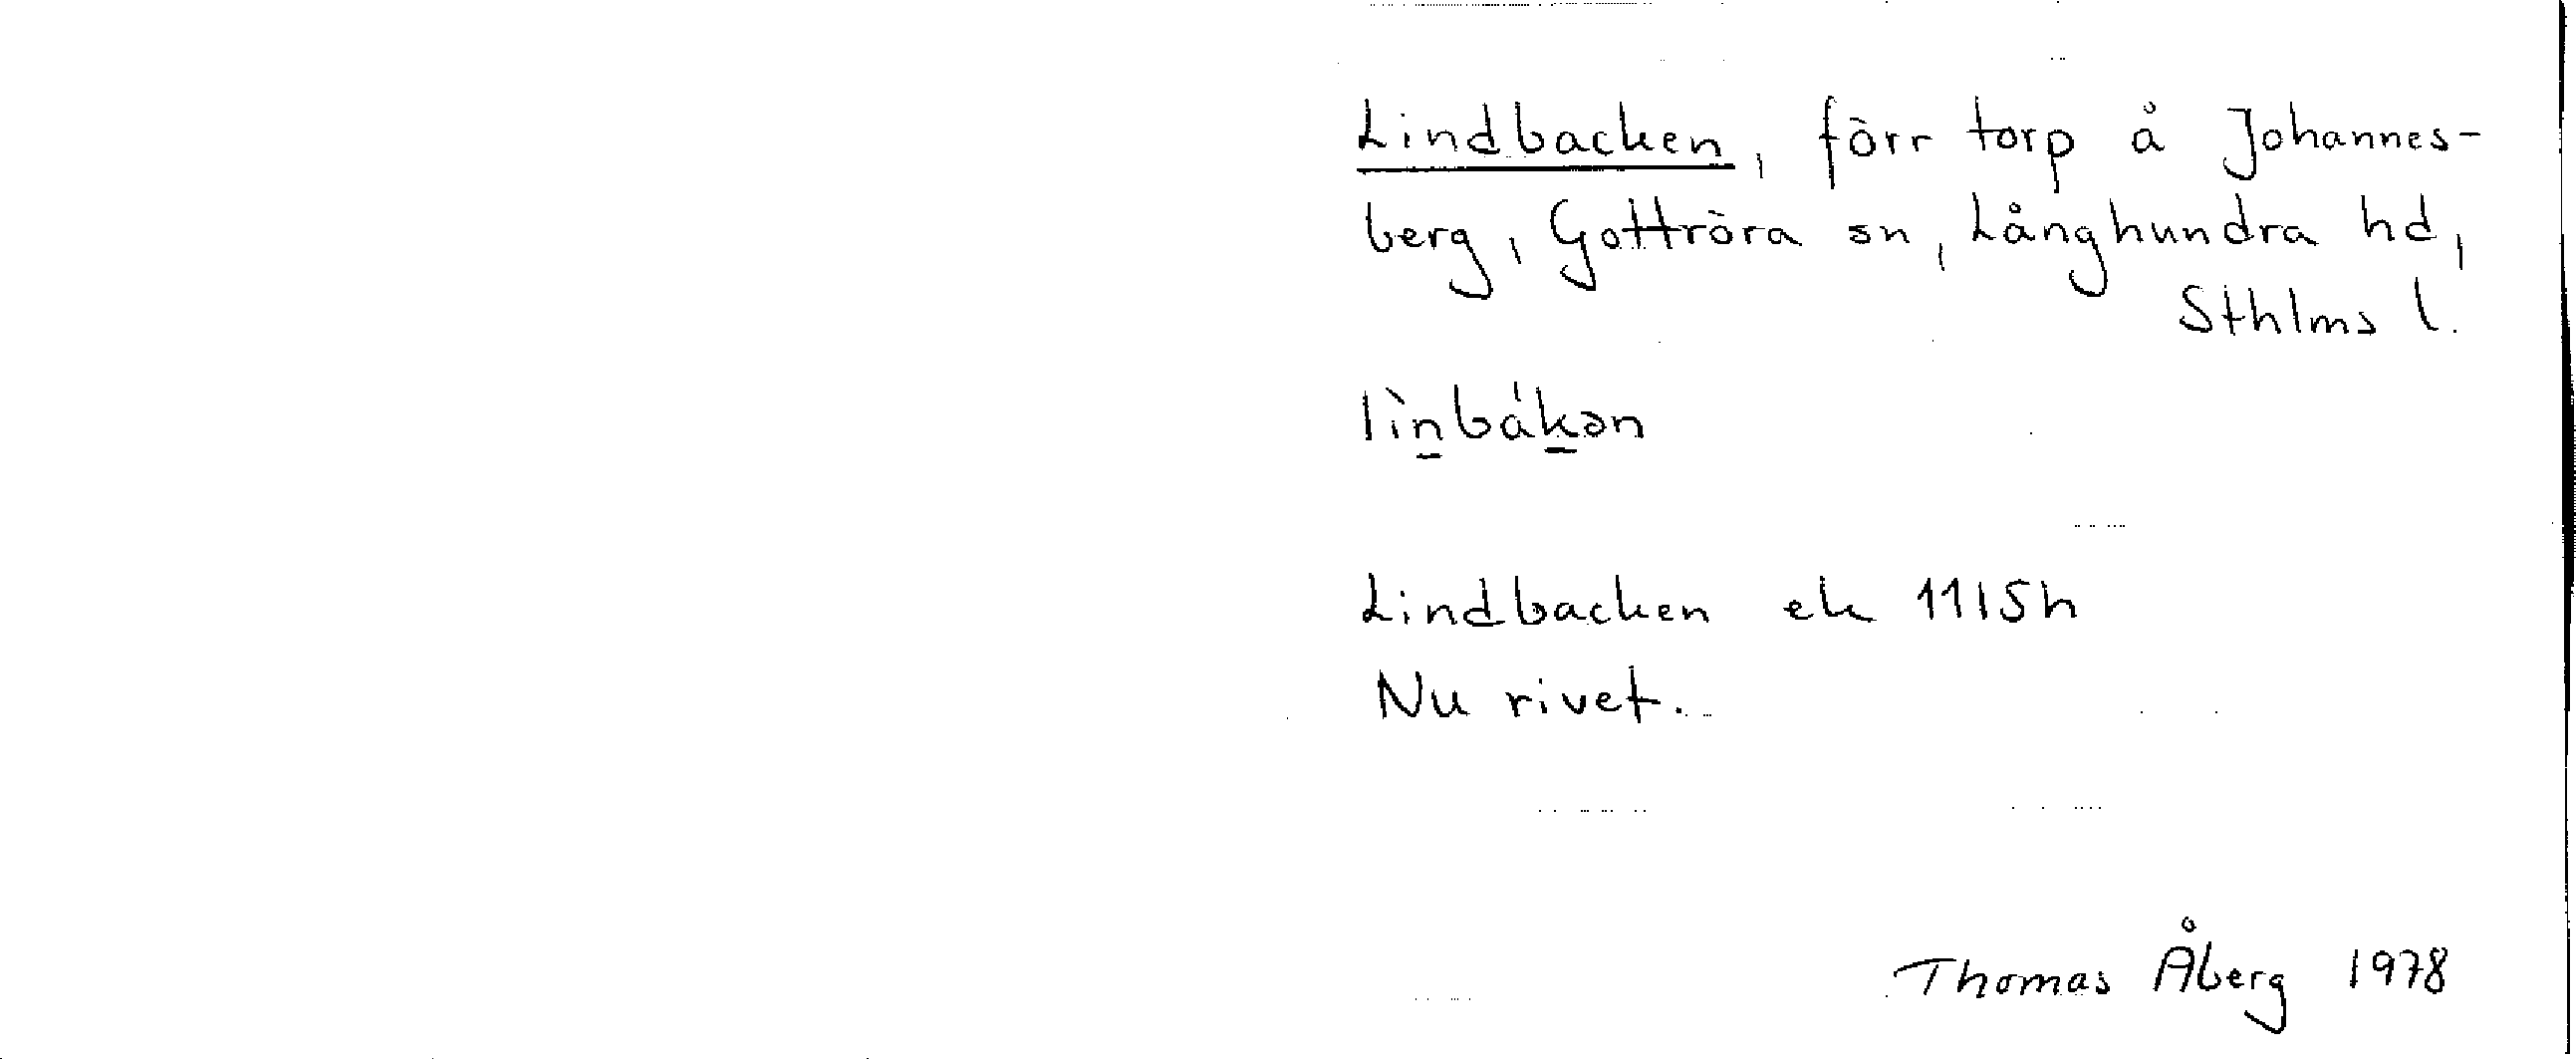 Lindbacken, förr torp å Johannes-
berg, Gottröra sn, Långhundra hd,
Sthlms l.
lìn̲bák̲ən
Lindbacken ek 11I5h
Nu rivet.
Thomas Åberg 1978